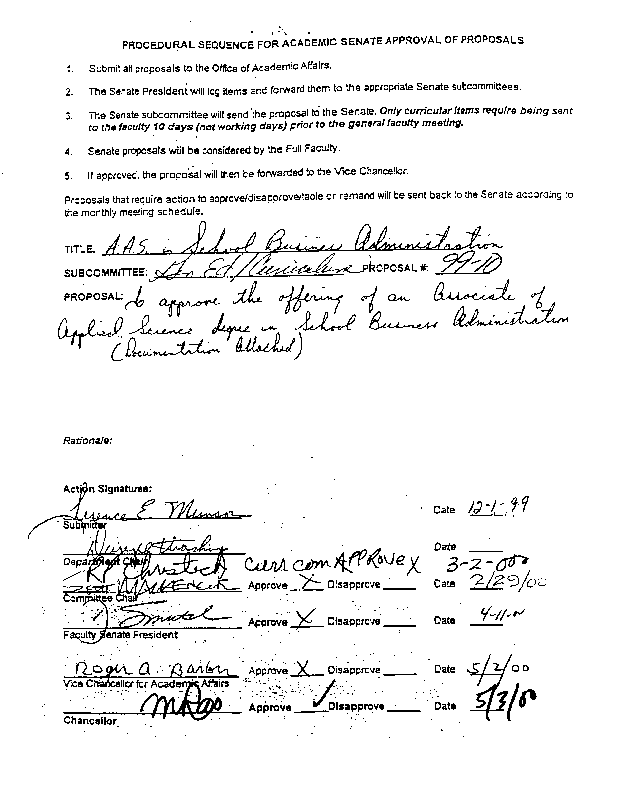 PROCEDURAL SEQUENCE FOR ACADEMIC SENATE APPROVAL OF PROPOSALS
1. Submit all proposals to the Office of Academic Affairs.
2. The Senate President will log items and forward them to the appropriate Senate subcommittees.
3. The Senate subcommittee will send the proposal to the Senate. Only curricular items require being sent
to the faculty 10 days (not working days) prior to the general faculty meeting.
4. Senate proposals will be considered by the Full Faculty.
5. If approved, the proposal will then be forwarded to the Vice Chancellor.
Proposals that require action to approve/disapprove/table or remand will be sent back to the Senate according to
the monthly meeting schedule.
TITLE: A.A.S. in School Business Administration
SUBCOMMITTEE: Ed/Curriculum PROPOSAL #: 99-10
PROPOSAL: to approve the offering of an Associate of
Applied Science degree in School Business Administration
(Documentation Attached)
Rationale:
Action Signatures:
Terence E. Munson Date 12-1-99
Submitter
Date
Department Chair Curr com APPROVE X 3-2-00
Approve X Disapprove Date 2/29/00
Committee Chair
Approve X Disapprove Date 4-11-00
Faculty Senate President
Roger A. Barber Approve X Disapprove Date 5/2/00
Vice Chancellor for Academic Affairs
Approve ✓ Disapprove Date 5/3/00
Chancellor